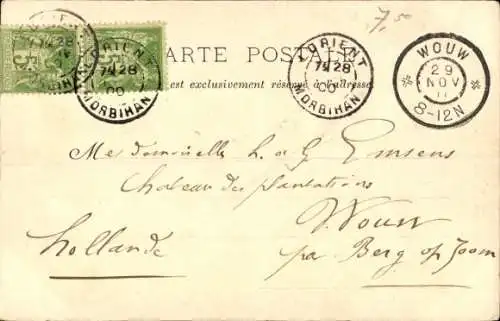 7,50
CARTE POSTALE
est exclusivement réservé à l'adresse
LORIENT
7 28
00
MORBIHAN
LORIENT
7 28
00
MORBIHAN
WOUW
29
NOV
8-12N
5
5
Mademoiselle L. de G. Emsens
Chateau des plantations
Wouw
Hollande
pa Berg op Zoom